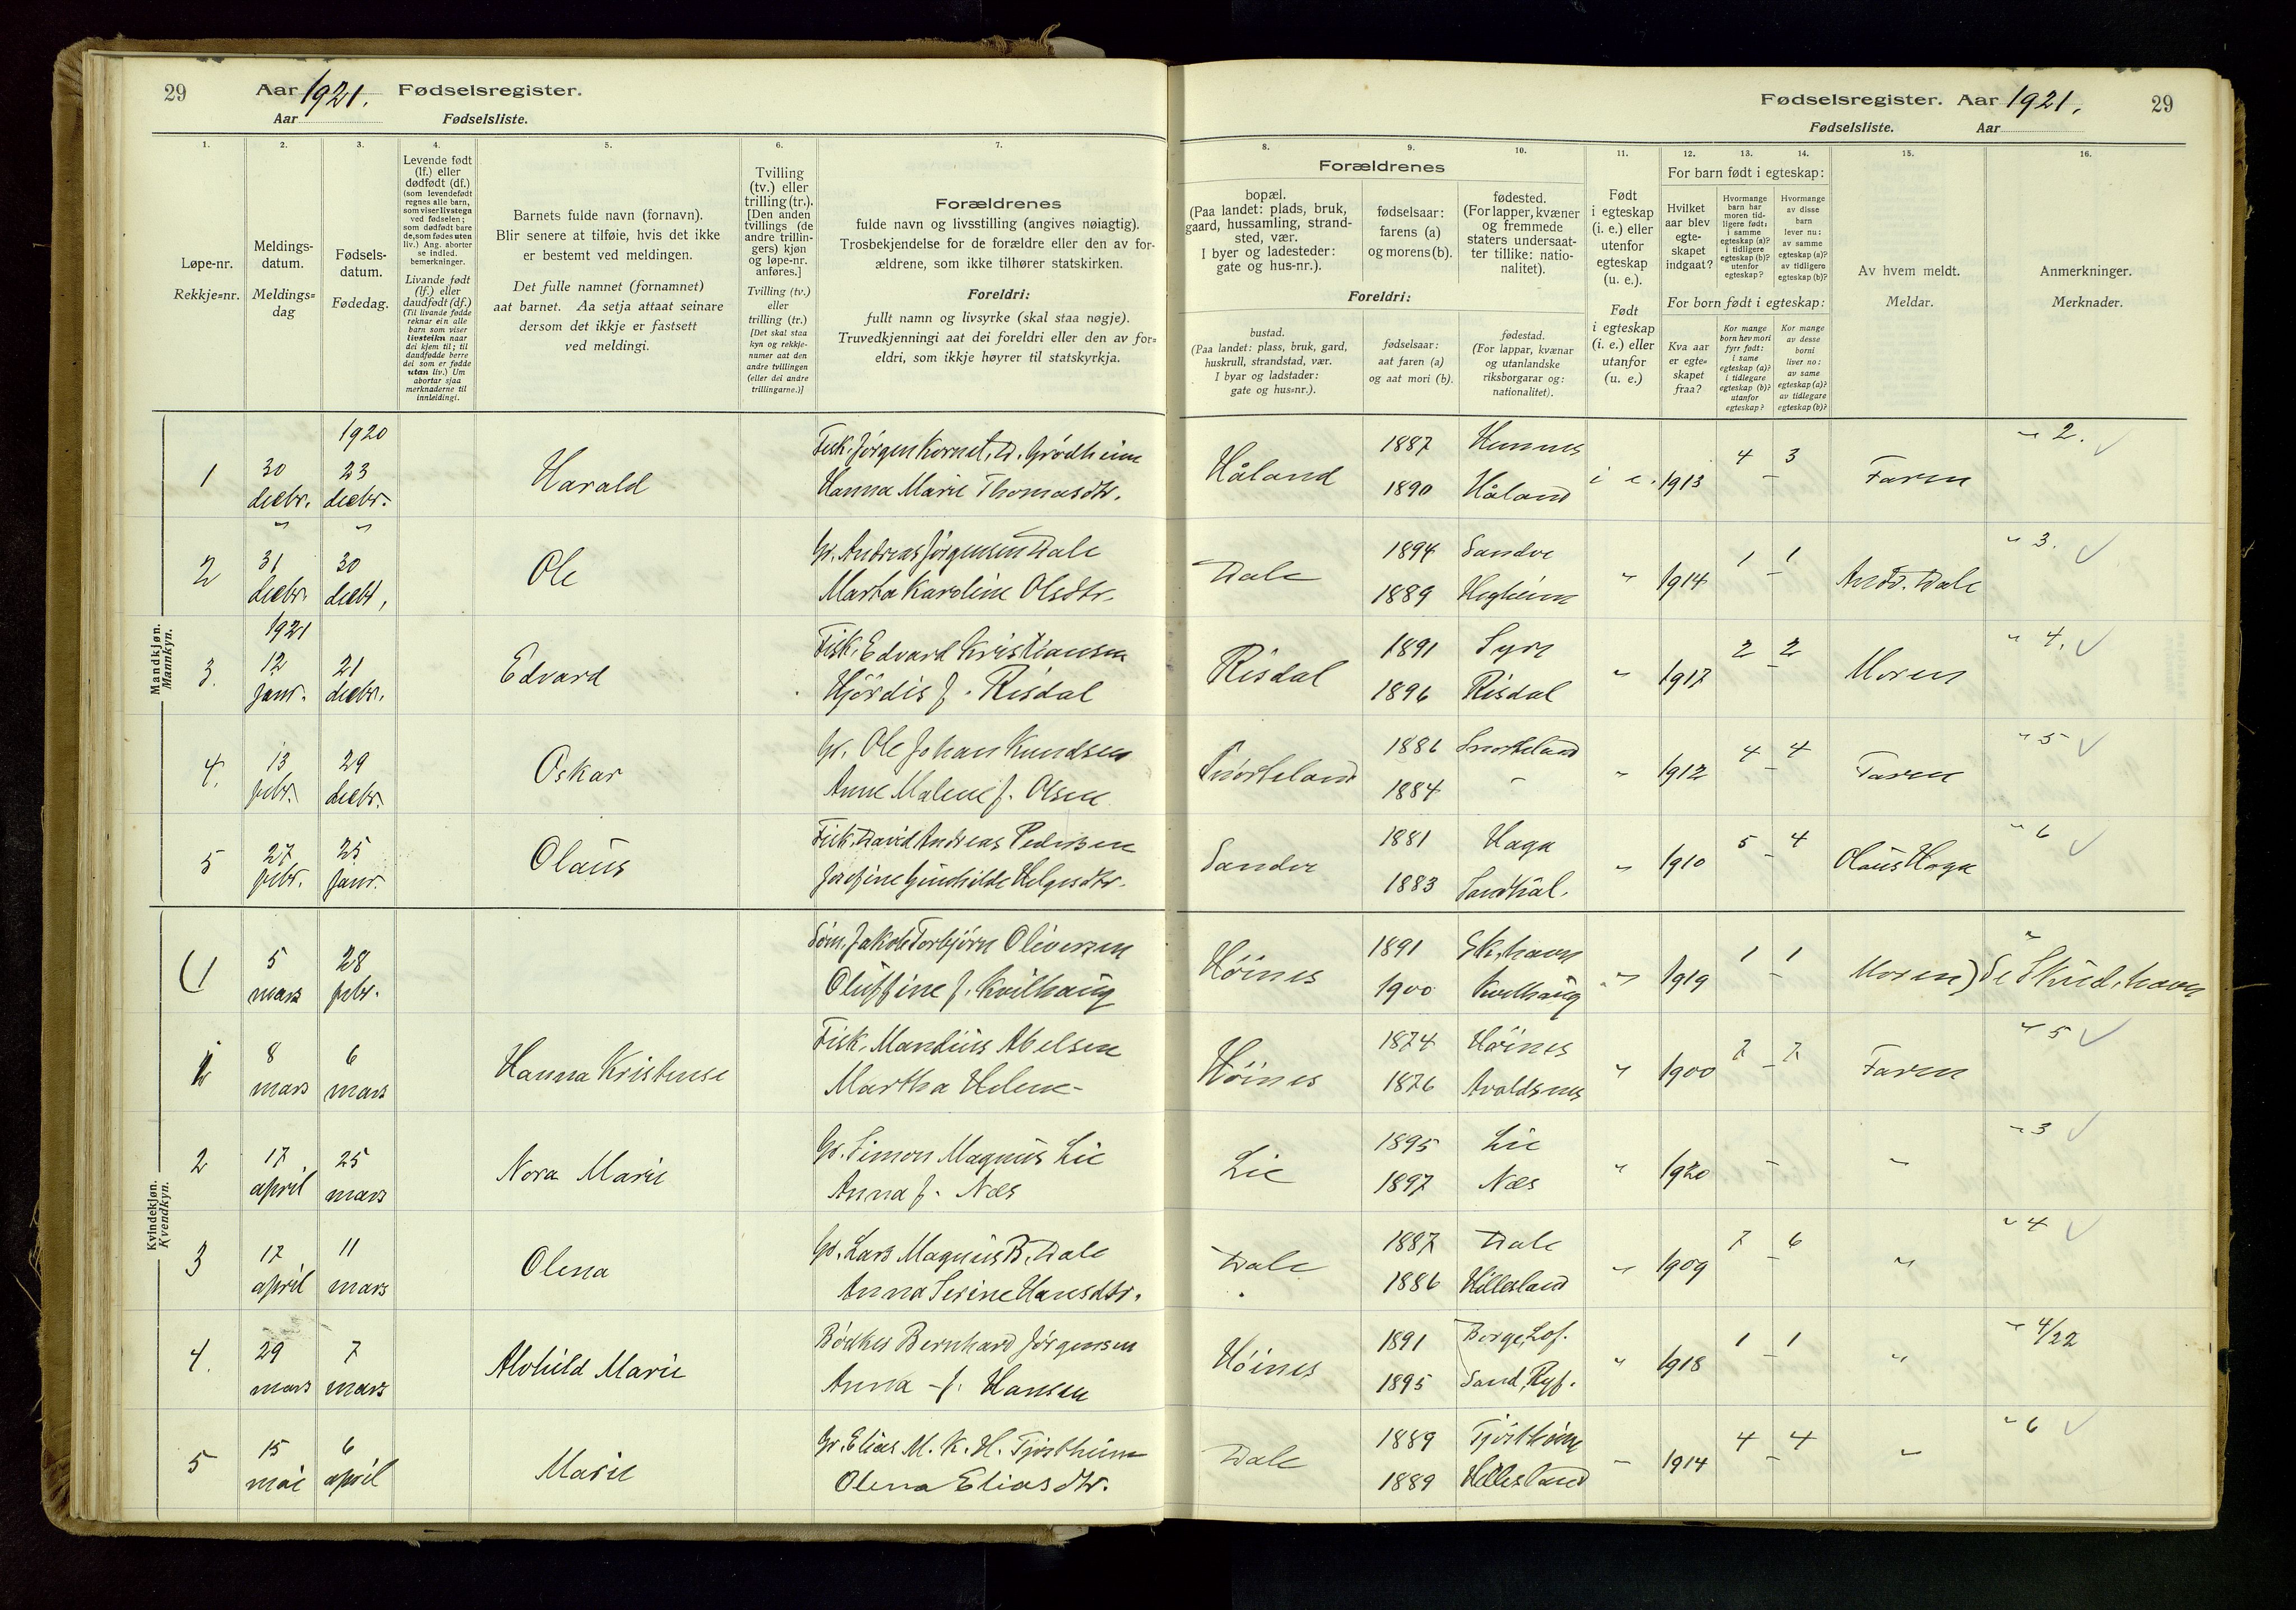 29 Aar 1921. Fødselsregister.
Aar Fødselsliste.
1. 2. 3. 4. 5. 6. 7.
Løpe-nr.
Rekkje=nr.
Meldings-
datum.
Meldings=
dag
Fødsels-
datum.
Fødedag.
Levende født
(lf.) eller
dødfødt (df.)
(som levendefødt
regnes alle barn,
som viser livstegn
ved fødselen;
som dødfødt bare
de, som fødes uten
liv.) Ang. aborter
se indled.
bemerkninger.
Livande født
(lf.) eller
daudfødt (df.)
(Til livande fødde
reknar ein alle
barn som viser
livsteikn naar
dei kjem til; til
daudfødde berre
dei som er fødde
utan liv.) Um
abortar sjaa
merknaderne til
innleidingi.
Barnets fulde navn (fornavn).
Blir senere at tilføie, hvis det ikke
er bestemt ved meldingen.
Det fulle namnet (fornamnet)
aat barnet. Aa setja attaat seinare
dersom det ikkje er fastsett
ved meldingi.
Tvilling
(tv.) eller
trilling (tr.).
[Den anden
tvillings (de
andre trillin-
gers) kjøn
og løpe-nr.
anføres.]
Tvilling (tv.)
eller
trilling (tr.)
[Det skal staa
kyn og rekkje-
numer aat den
andre tvillingen
(eller dei andre
trillingarne.)]
Forældrenes
fulde navn og livsstilling (angives nøiagtig).
Trosbekjendelse for de forældre eller den av for-
ældrene, som ikke tilhører statskirken.
Foreldri:
fullt namn og livsyrke (skal staa nøgje).
Truvedkjenningi aat dei foreldri eller den av for=
eldri, som ikkje høyrer til statskyrkja.
Mandkjøn.
Mannkyn.
1920
1 30 decbr. 23 decbr. Harald
Fisk. Jørgen Kornel. D. Grødheim
Hanna Marie Thomasdtr.
" "
2 31 decbr. 30 decbr. Ole
Gr. Andreas Jørgensen Dale
Marta Karoline Olsdtr.
1921
3. 12 janr. 21 decbr. Edvard
Fisk. Edvard Kristiansen
Hjördis f. Risdal
4. 13 febr. 29 decbr. Oskar
Gr. Ole Johan Knudsen
Anne Malene f. Olsen
5 27 febr. 25 janr. Olaus
Fisk. David Andreas Pedersen
Josefine Gunhilde Helgesdtr.
Kvindekjøn.
Kvendkyn.
(1 5 mars 28 febr.
Søm. Jakob Torbjörn Oliversen
Oluffine f. Kvilhaug
1 8 mars 6 mars Hanna Kristense
Fisk. Mandius Abelsen
Martha Helene -
2 17 april 25 mars Nora Marie
Gr. Simon Magnus Lie
Anna f. Næs
3 17 april 11 mars Olena
Gr. Lars Magnus B. Dale
Anna Serine Hansdtr.
4. 29 mars 7 mars Alvhild Marie
Bødker Bernhard Jørgensen
Anna - f. Hansen
5 15 mai 6 april Marie
Gr. Elias M. K. H. Tjøstheim
Olena Eliasdtr.
Fødselsregister. Aar 1921. 29
Fødselsliste. Aar
8. 9. 10. 11. 12. 13. 14. 15. 16.
Forældrenes
bopæl.
(Paa landet: plads, bruk,
gaard, hussamling, strand-
sted, vær.
I byer og ladesteder:
gate og hus-nr.).
fødselsaar:
farens (a)
og morens (b).
fødested.
(For lapper, kvæner
og fremmede
staters undersaat-
ter tillike: natio-
nalitet).
Foreldri:
bustad.
(Paa landet: plass, bruk, gard,
huskrull, strandstad, vær.
I byar og ladstader:
gate og hus=nr.).
fødselsaar:
aat faren (a)
og aat mori (b).
fødestad.
(For lappar, kvænar
og utanlandske
riksborgarar og:
nationalitet).
Født
i egteskap
(i. e.) eller
utenfor
egteskap
(u. e.).
Født
i egteskap
(i. e.) eller
utanfor
(u. e.)
For barn født i egteskap:
Hvilket
aar blev
egte-
skapet
indgaat?
Hvormange
barn har
moren tid-
ligere født:
i samme
egteskap (a)?
i tidligere
egteskap (b)?
utenfor
egteskap?
Hvormange
av disse
barn
lever nu:
av samme
egteskap (a)?
av tidligere
egteskap (b)?
For born født i egteskap:
Kva aar
er egte=
skapet
fraa?
Kor mange
born hev mori
fyrr født:
i same
egteskap (a)?
i tidlegare
egteskap (b)?
utanfor
egteskap?
Kor mange
av desse
borni
liver no:
av same
egteskap (a)?
av tidlegare
egteskap (b)?
Av hvem meldt.
Meldar.
Anmerkninger.
Merknader.
Håland 1887 Hemnes i e. 1913 4 - 3 Faren " 2.
1890 Håland
Dale 1894 Sandve " 1914 1 - 1 Andr. Dale " 3.
1889 Hegheim
Risdal 1891 Syre " 1917 2 - 2 Moren " 4.
1896 Risdal
Snørteland 1886 Snørteland " 1912 4 - 4 Faren " 5
1884 "
Sandve 1881 Haga " 1910 5 - 4 Olaus Haga " 6
1883 Sandhål.
Høines 1891 Sk.havn " 1919 1 - 1 Moren) Se Skud.havn
1900 Kvilhaug
Høines 1874 Høines " 1900 7 - 7 Faren " 5
1876 Avaldsnes
Lie 1895 Lie " 1920 - " " 3
1897 Næs
Dale 1887 Dale " 1909 7 - 6 " " 4
1886 Hillesland
Høines 1891 Borge, Lof. " 1918 1 - 1 " " 4/22
1895 Sand, Ryf.
Dale 1889 Tjøstheim " 1914 4 - 4 " " 6
1889 Hillesland